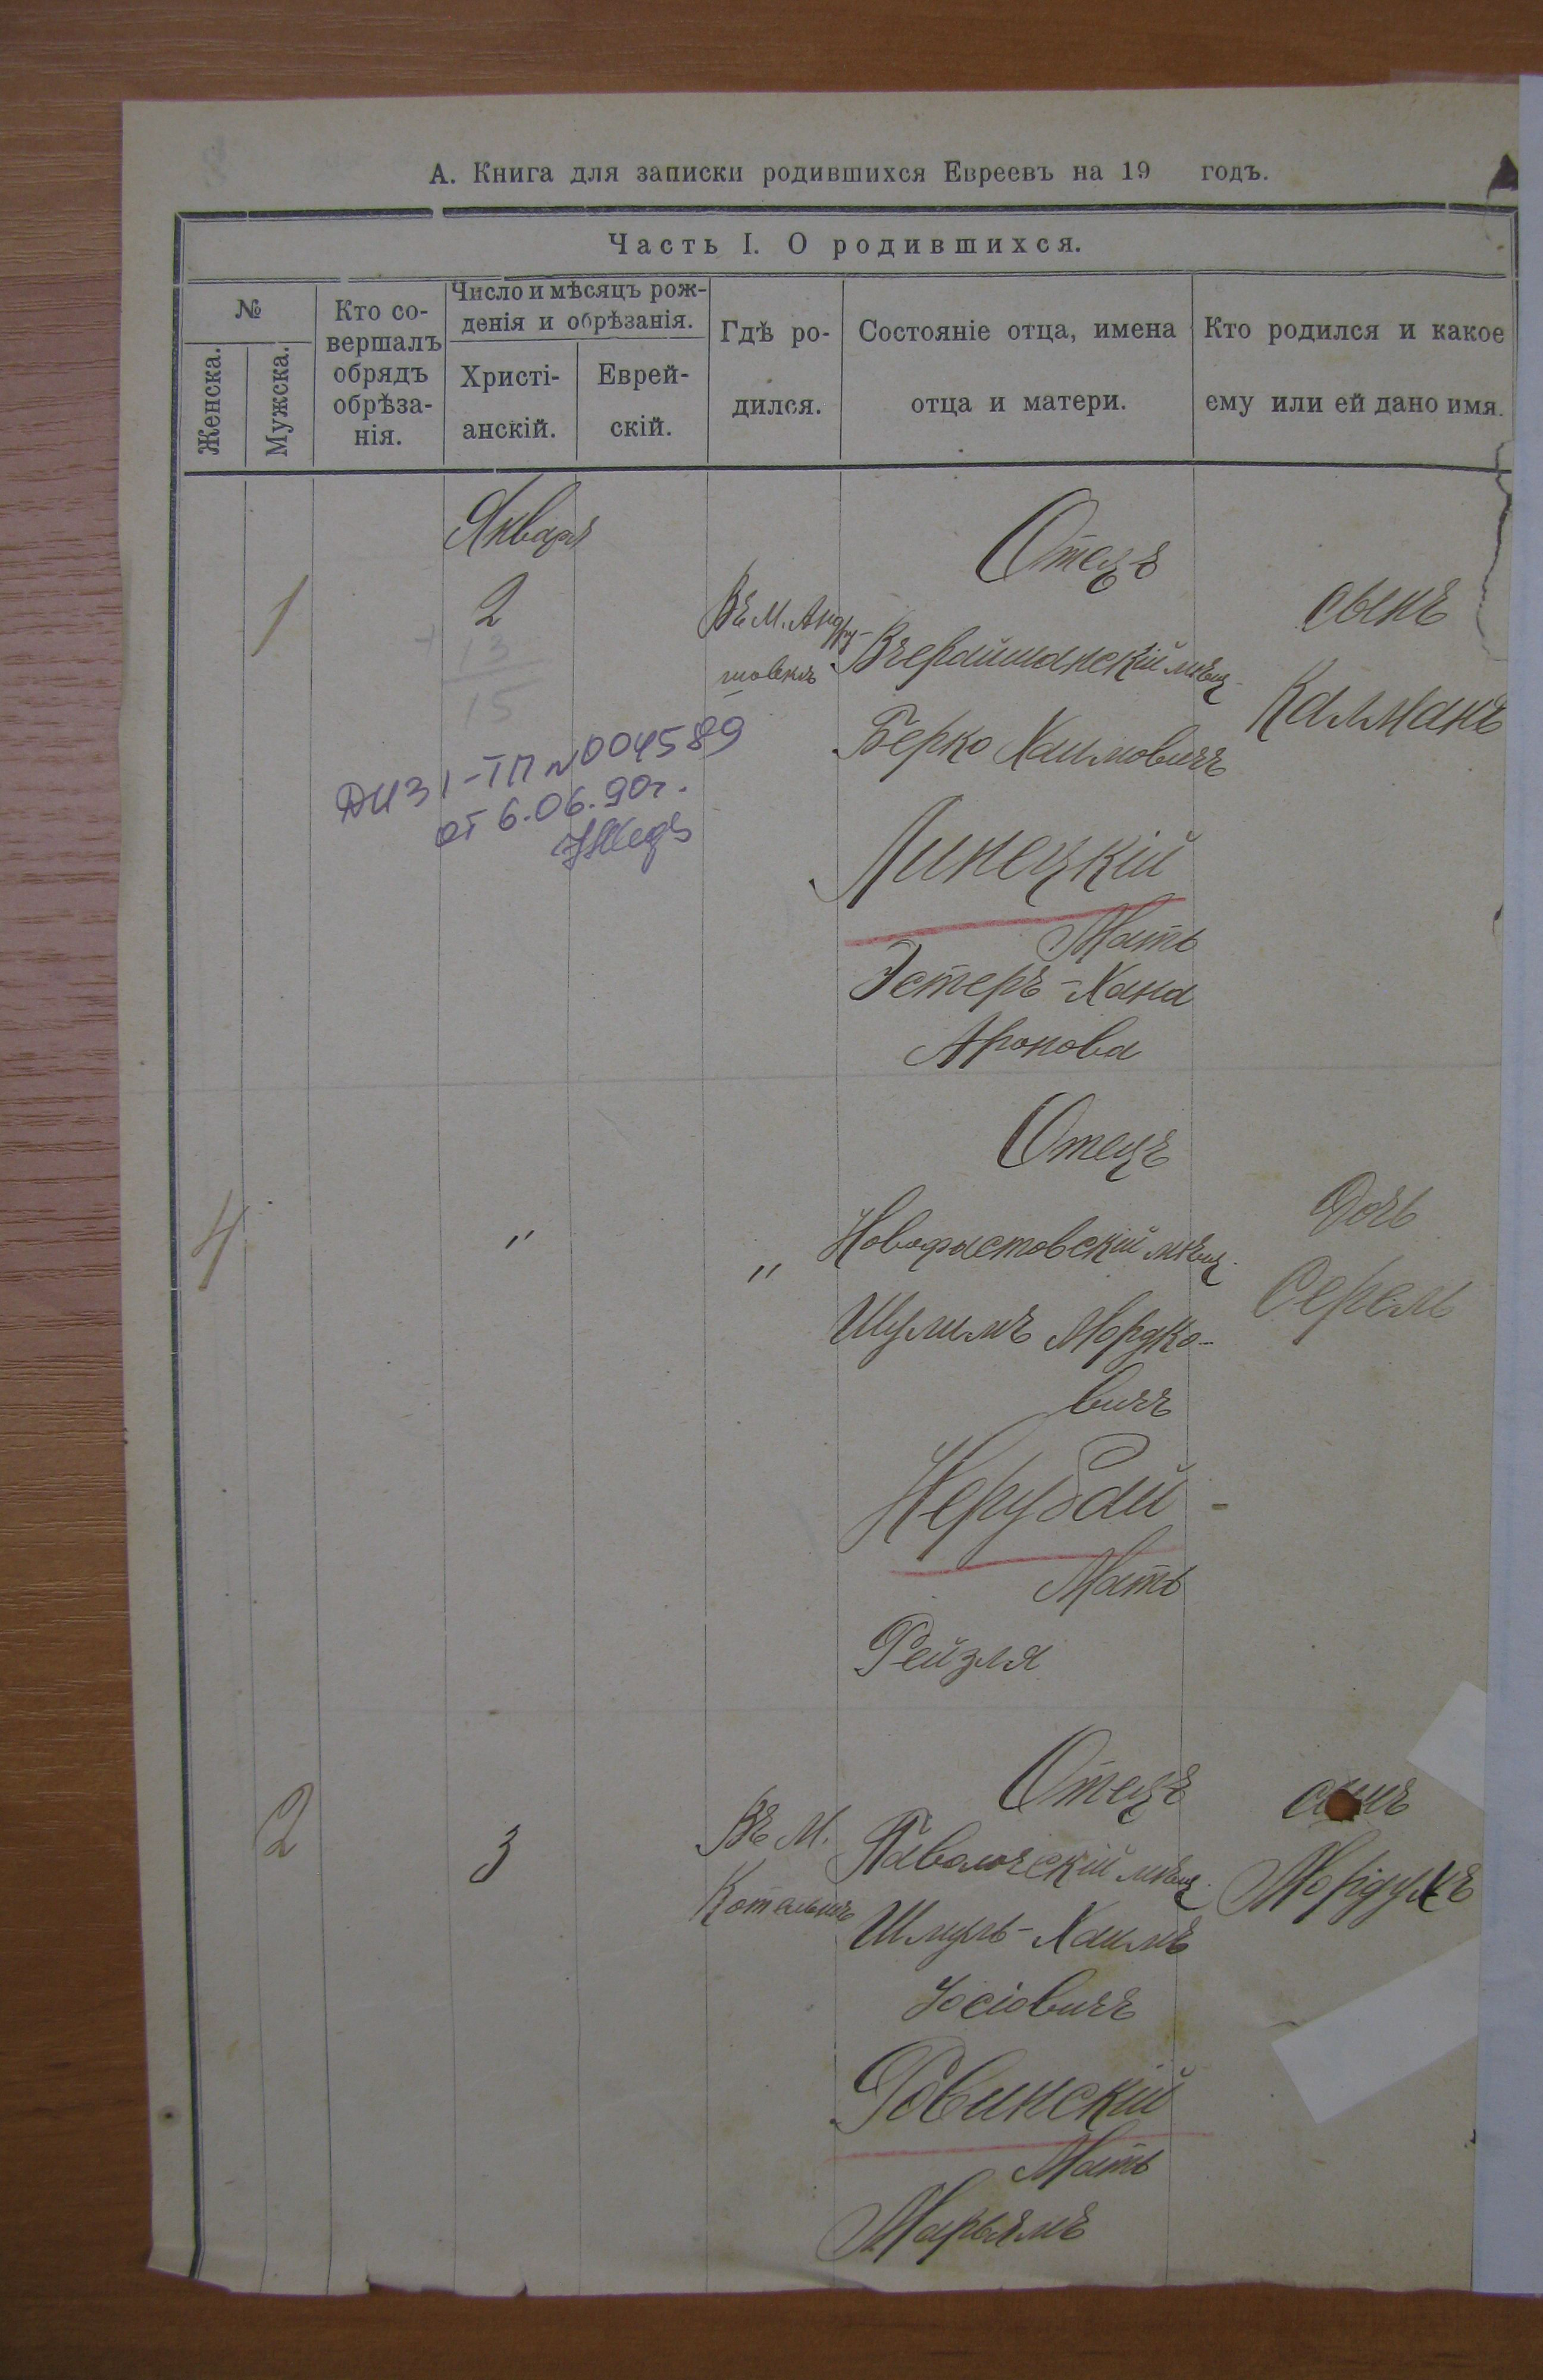 А. Книга для записки родившихся Евреевъ на 19 годъ.
Часть I. О родившихся.
№
Женска.
Мужска.
Кто со-
вершалъ
обрядъ
обрѣза-
нія.
Число и мѣсяцъ рож-
денія и обрѣзанія.
Христі-
анскій.
Еврей-
скій.
Гдѣ ро-
дился.
Состояніе отца, имена
отца и матери.
Кто родился и какое
ему или ей дано имя.
Январь
1
2
+ 13
15
Въ м. Андру-
шовкѣ
Отецъ
Вчерайшанскій мѣщ.
Берко Хаимовичъ
Линецкій
Мать
Эстеръ-Хана
Аронова
сынъ
Калманъ
АИЗ 1-ТП №004589
от 6.06.90г.
4
"
"
Отецъ
Новофастовскій мѣщ.
Шулимъ Мордко-
вичъ
Нерубай
Мать
Рейзля
Дочь
Серель
2
3
Въ м.
Котельнѣ
Отецъ
Паволочскій мѣщ.
Шмуль-Хаимъ
Іосіовичъ
Ровинскій
Мать
Марьямъ
сынъ
Мордухъ